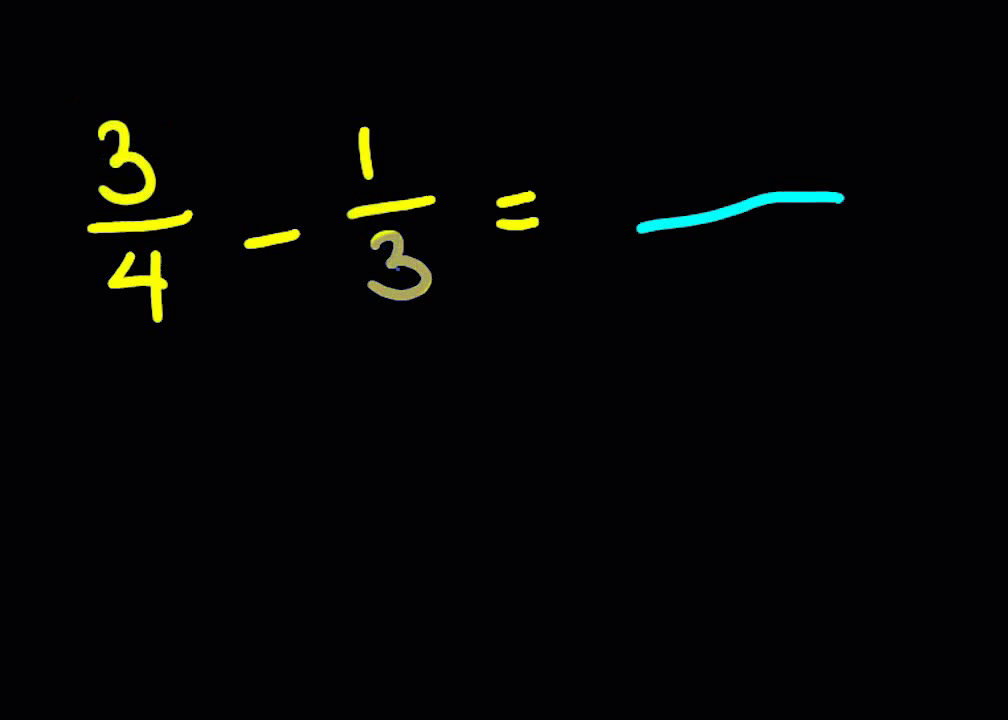 3/4 - 1/3 =